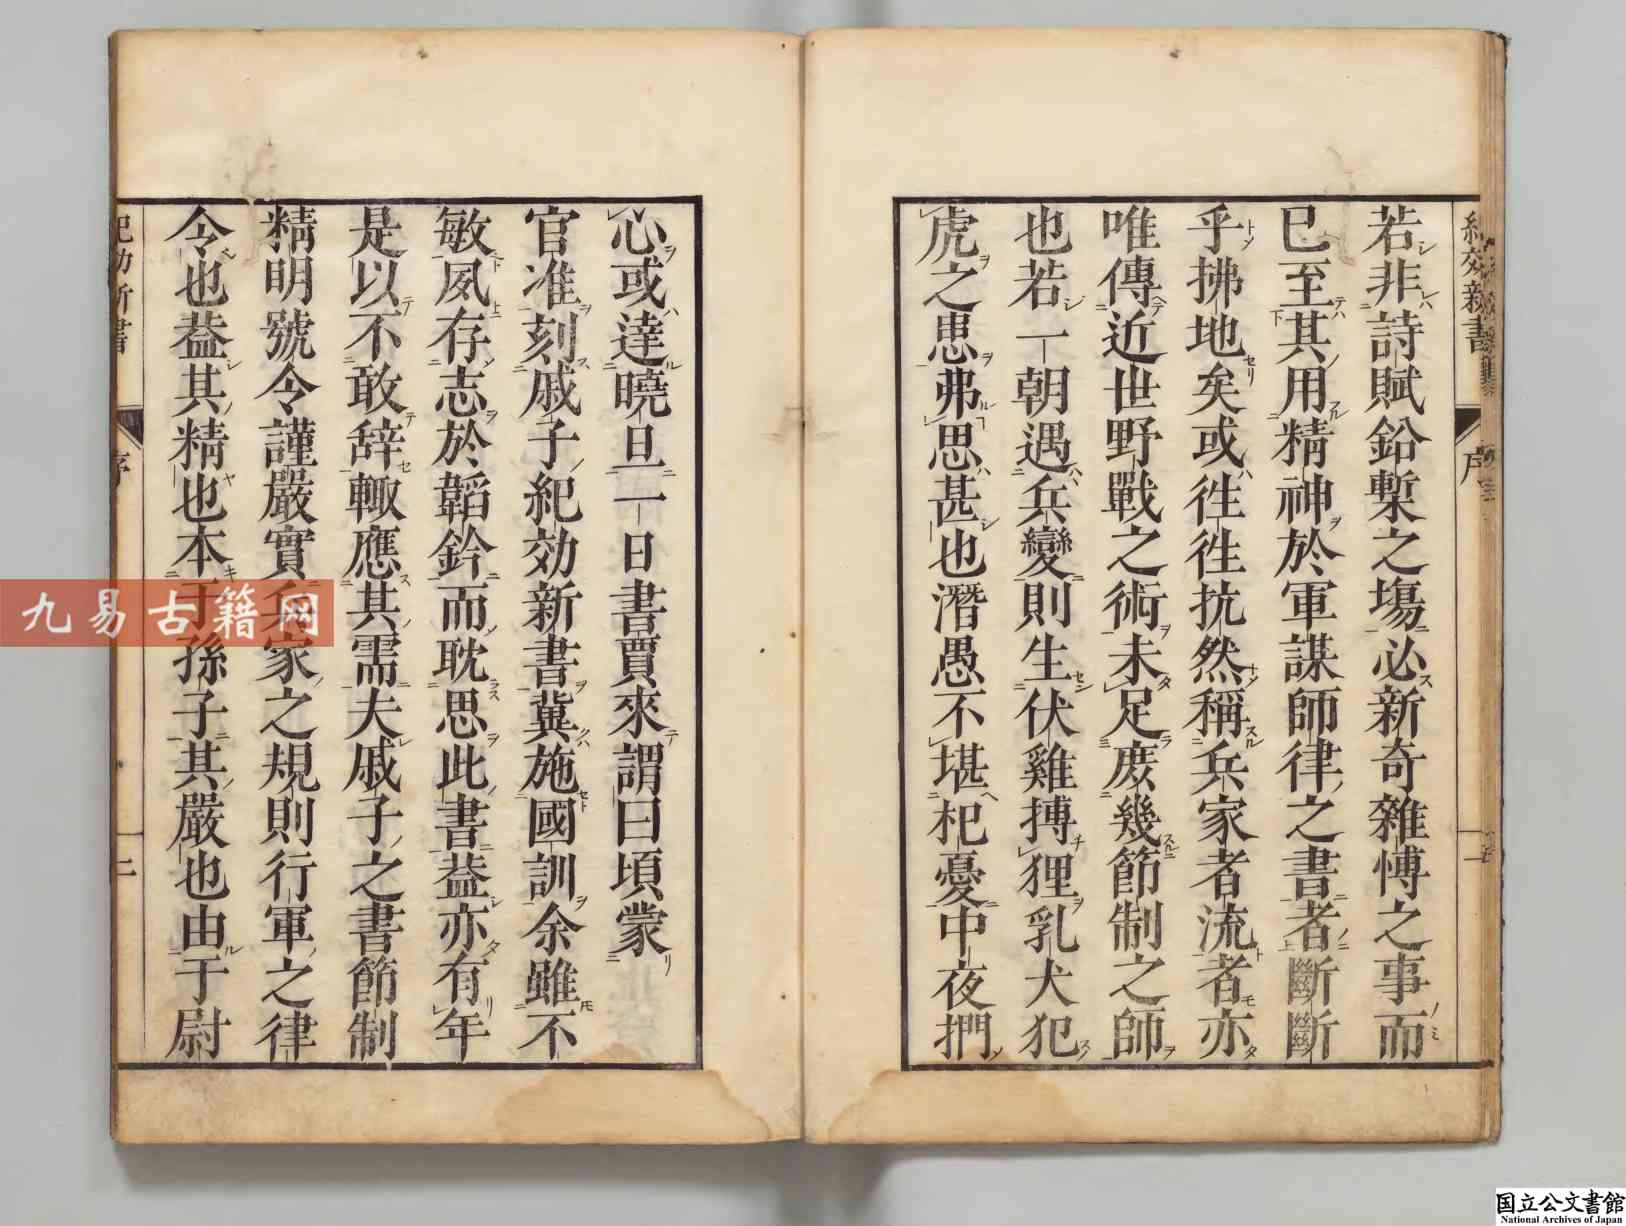 紀効新書
序
若非詩賦鉛槧之塲必新奇雜愽之事而
已至其用精神於軍謀師律之書者斷斷
乎拂地矣或徃徃抗然稱兵家者流者亦
唯傳近世野戰之術未足庶幾節制之師
也若一朝遇兵變則生伏雞搏狸乳犬犯
虎之患弗思甚也潛愚不堪杞憂中夜捫
心或達曉旦一日書賈來謂曰頃蒙
官准刻戚子紀効新書冀施國訓余雖不
敏夙存志於韜鈐而耽思此書葢亦有年
是以不敢辞輙應其需夫戚子之書節制
精明號令謹嚴實兵家之規則行軍之律
令也葢其精也本于孫子其嚴也由于尉
紀効新書
序
二
九易古籍网
国立公文書館
National Archives of Japan